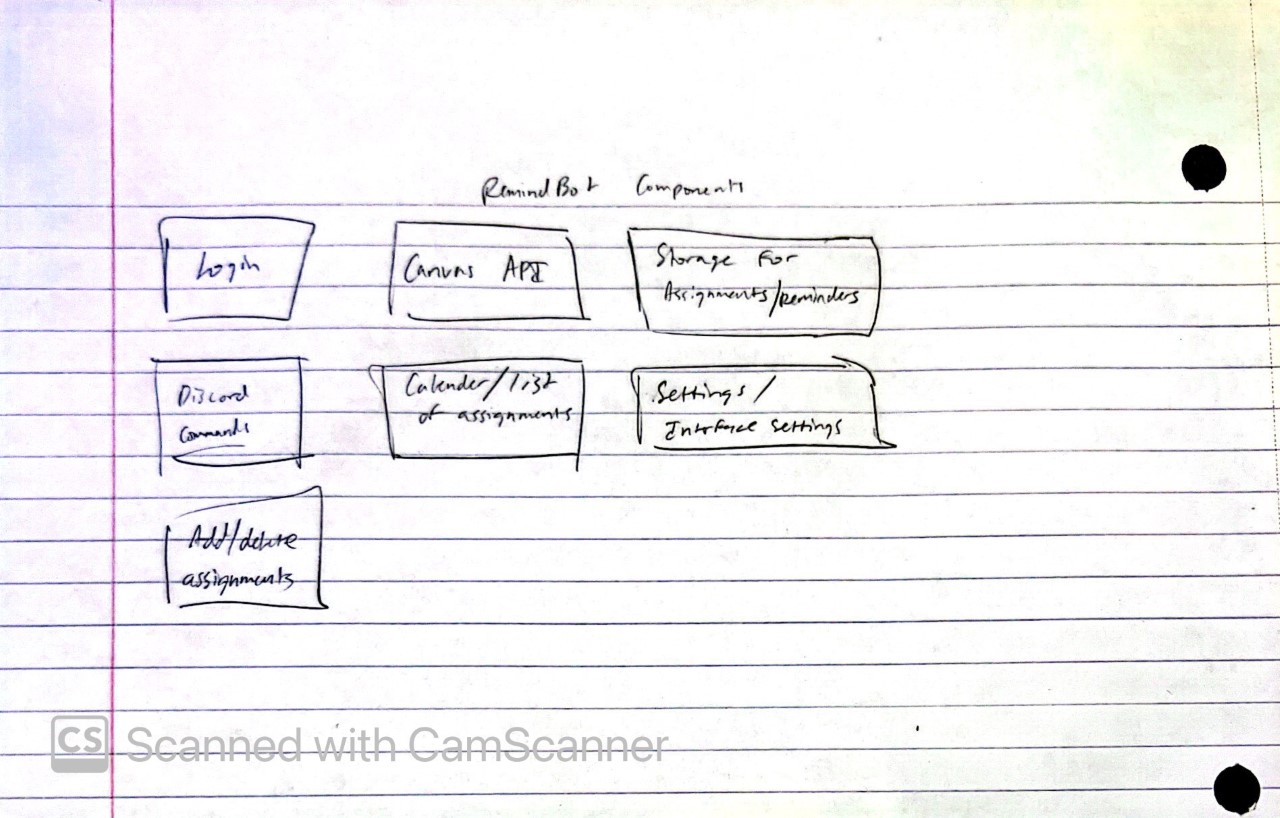 RemindBot Components
Login
Canvas API
Storage For
Assignments/reminders
Discord
Commands
Calender/list
of assignments
Settings/
Interface Settings
Add/delete
assignments
CS Scanned with CamScanner